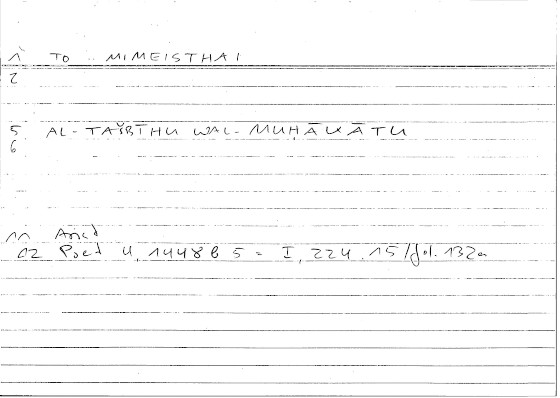 1 TO MIMEISTHAI
2
5 AL-TAŠBĪHU WAL-MUḤĀKĀTU
6
11 Arist
12 Poet 4, 1448 b 5 = I, 224.15/fol. 132a